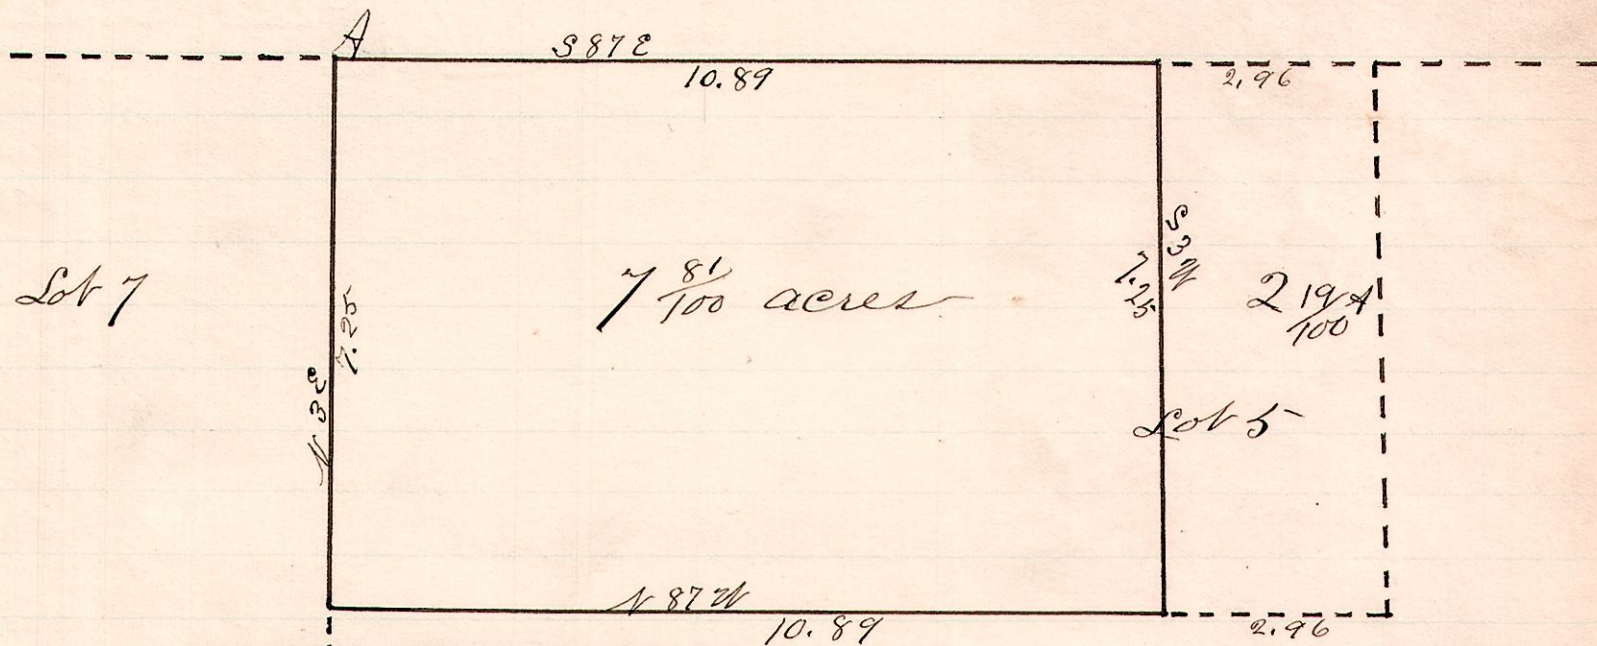 A
S 87 E
10.89
2.96
Lot 7
N 3 E
7.25
7 81/100 acres
S 3 W
7.25
2 19/100 A
Lot 5
N 87 W
10.89
2.96